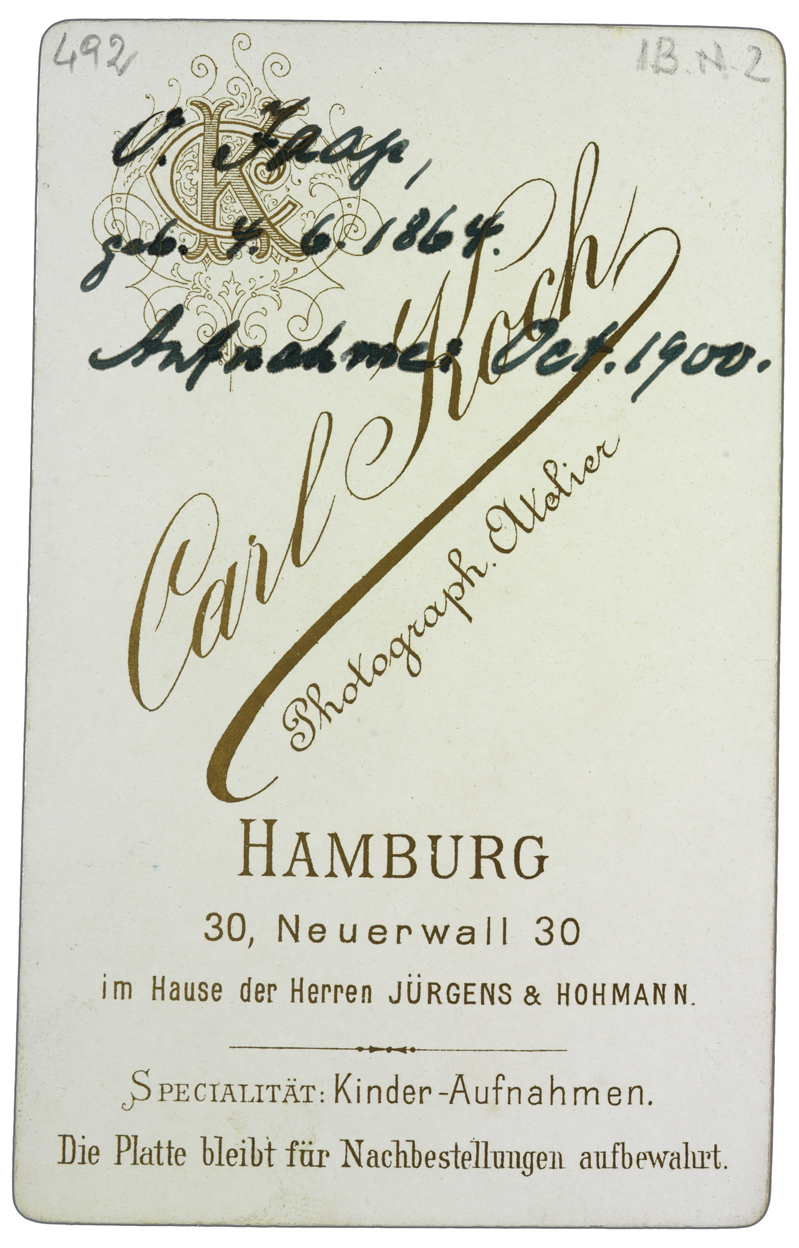 492
IB. N. 2
CK
O. Jaap,
geb. 4. 6. 1864.
Aufnahme: Oct. 1900.
Carl Koch
Photograph. Atelier
HAMBURG
30, Neuerwall 30
im Hause der Herren JÜRGENS & HOHMANN.
SPECIALITÄT: Kinder-Aufnahmen.
Die Platte bleibt für Nachbestellungen aufbewahrt.